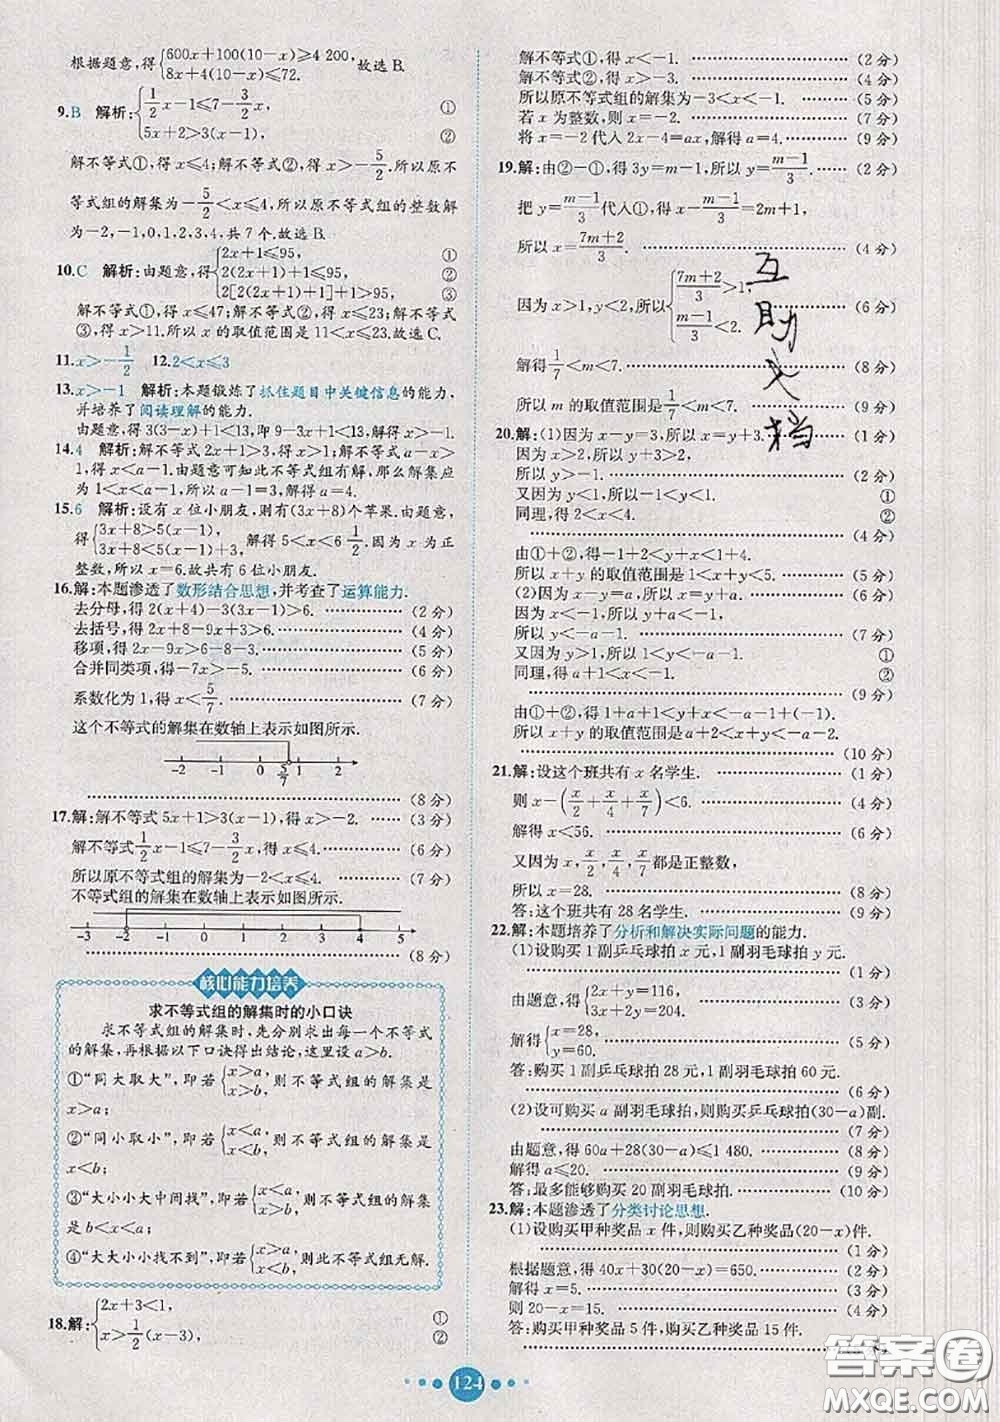 根据题意,得{600x+100(10-x)≥4 200, 8x+4(10-x)≤72. 故选B.
9.B 解析:{1/2x-1≤7-3/2x, ①
5x+2>3(x-1), ②
解不等式①,得x≤4;解不等式②,得x>-5/2.所以原不
等式组的解集为-5/2<x≤4,所以原不等式组的整数解
为-2,-1,0,1,2,3,4,共7个.故选B.
10.C 解析:由题意,得{2x+1≤95, ①
2(2x+1)+1≤95, ②
2[2(2x+1)+1]+1>95, ③
解不等式①,得x≤47;解不等式②,得x≤23;解不等式
③,得x>11.所以x的取值范围是11<x≤23.故选C.
11.x>-1/2 12.2<x≤3
13.x>-1 解析:本题锻炼了抓住题目中关键信息的能力,
并培养了阅读理解的能力.
由题意,得3(3-x)+1<13,即9-3x+1<13,解得x>-1.
14.4 解析:解不等式2x+1>3,得x>1;解不等式a-x>
1,得x<a-1.由题意可知此不等式组有解,那么解集应
为1<x<a-1.所以a-1=3,解得a=4.
15.6 解析:设有x位小朋友,则有(3x+8)个苹果.由题意,
得{3x+8>5(x-1), 3x+8<5(x-1)+3, 解得5<x<6 1/2.因为x为正
整数,所以x=6.故共有6位小朋友.
16.解:本题渗透了数形结合思想,并考查了运算能力.
去分母,得2(x+4)-3(3x-1)>6. (2分)
去括号,得2x+8-9x+3>6. (4分)
移项,得2x-9x>6-8-3. (5分)
合并同类项,得-7x>-5. (6分)
系数化为1,得x<5/7. (7分)
这个不等式的解集在数轴上表示如图所示.
-2 -1 0 5/7 1 2
(8分)
17.解:解不等式5x+1>3(x-1),得x>-2. (3分)
解不等式1/2x-1≤7-3/2x,得x≤4. (6分)
所以原不等式组的解集为-2<x≤4. (7分)
不等式组的解集在数轴上表示如图所示.
-3 -2 -1 0 1 2 3 4 5
(8分)
核心能力培养
求不等式组的解集时的小口诀
求不等式组的解集时,先分别求出每一个不等式
的解集,再根据以下口诀得出结论,这里设a>b.
①“同大取大”,即若{x>a, x>b, 则不等式组的解集是
x>a;
②“同小取小”,即若{x<a, x<b, 则不等式组的解集是
x<b;
③“大小小大中间找”,即若{x<a, x>b, 则不等式组的解集
是b<x<a;
④“大大小小找不到”,即若{x>a, x<b, 则此不等式组无解.
18.解:{2x+3<1, ①
x>1/2(x-3), ②
解不等式①,得x<-1. (2分)
解不等式②,得x>-3. (4分)
所以原不等式组的解集为-3<x<-1. (5分)
若x为整数,则x=-2. (7分)
将x=-2代入2x-4=ax,解得a=4. (9分)
19.解:由②-①,得3y=m-1,所以y=m-1/3. (2分)
把y=m-1/3代入①,得x-m-1/3=2m+1,
所以x=7m+2/3. (4分)
因为x>1,y<2,所以{7m+2/3>1, m-1/3<2. (6分)
解得1/7<m<7. (8分)
所以m的取值范围是1/7<m<7. (9分)
20.解:(1)因为x-y=3,所以x=y+3. (1分)
因为x>2,所以y+3>2,
所以y>-1. (2分)
又因为y<1,所以-1<y<1. ①
同理,得2<x<4. ②
(4分)
由①+②,得-1+2<y+x<1+4.
所以x+y的取值范围是1<x+y<5. (5分)
(2)因为x-y=a,所以x=y+a. (6分)
因为x<-1,所以y+a<-1,
所以y<-a-1. (7分)
又因为y>1,所以1<y<-a-1. ①
同理,得a+1<x<-1. ②
(9分)
由①+②,得1+a+1<y+x<-a-1+(-1).
所以x+y的取值范围是a+2<x+y<-a-2.
(10分)
21.解:设这个班共有x名学生. (1分)
则x-(x/2+x/4+x/7)<6. (4分)
解得x<56. (6分)
又因为x,x/2,x/4,x/7都是正整数,
所以x=28. (8分)
答:这个班共有28名学生. (9分)
22.解:本题培养了分析和解决实际问题的能力.
(1)设购买1副乒乓球拍x元,1副羽毛球拍y元.
(1分)
由题意,得{2x+y=116, 3x+2y=204. (3分)
解得{x=28, y=60. (5分)
答:购买1副乒乓球拍28元,1副羽毛球拍60元.
(6分)
(2)设可购买a副羽毛球拍,则购买乒乓球拍(30-a)副.
(7分)
由题意,得60a+28(30-a)≤1 480. (8分)
解得a≤20. (9分)
答:最多能够购买20副羽毛球拍. (10分)
23.解:本题渗透了分类讨论思想.
(1)设购买甲种奖品x件,则购买乙种奖品(20-x)件.
(1分)
根据题意,得40x+30(20-x)=650. (2分)
解得x=5. (3分)
则20-x=15. (4分)
答:购买甲种奖品5件,购买乙种奖品15件.
互
助
文
档
124
答案圈
MXQE.COM